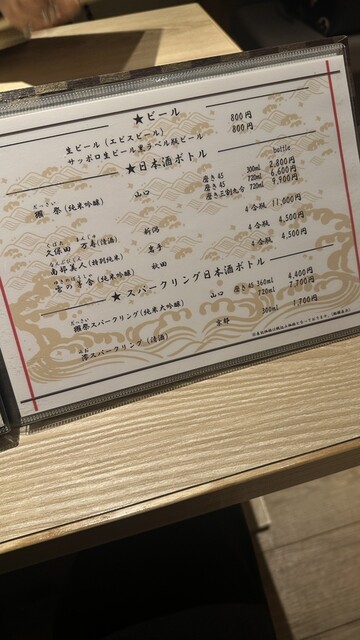 ★ビール
生ビール(エビスビール) 800円
サッポロ生ビール黒ラベル瓶ビール 800円
★日本酒ボトル
bottle
だっさい
獺祭(純米吟醸) 山口 磨き45 300ml 2,800円
磨き45 720ml 6,600円
磨き三割九分 720ml 9,900円
くぼた まんじゅ
久保田 万寿(清酒) 新潟 4合瓶 11,000円
なんぶびじん
南部美人(特別純米) 岩手 4合瓶 4,500円
雪の茅舎(純米吟醸) 秋田 4合瓶 4,500円
★スパークリング日本酒ボトル
だっさい
獺祭スパークリング(純米大吟醸) 山口 磨き45 360ml 4,400円
720ml 7,700円
みお
澪スパークリング(清酒) 京都 300ml 1,700円